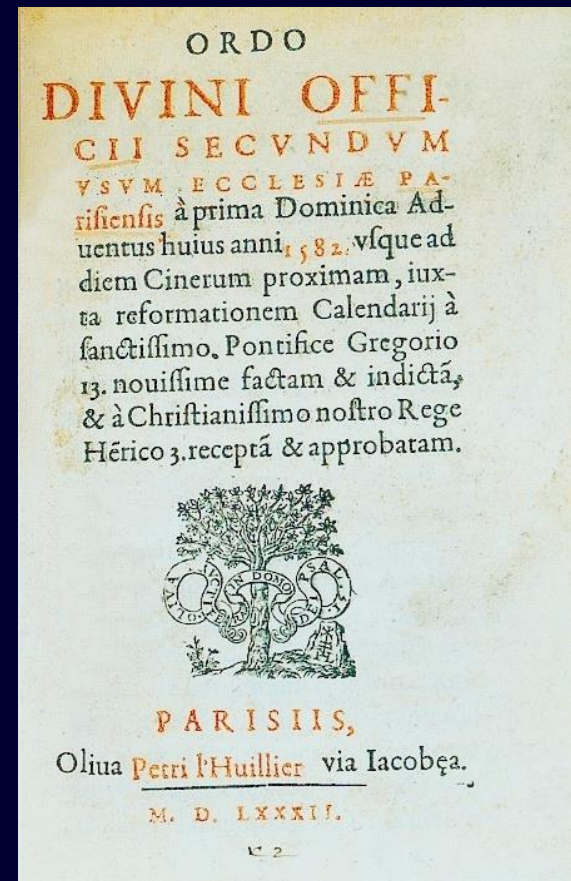 ORDO
DIVINI OFFI-
CII SECVNDVM
VSVM ECCLESIÆ PA-
risiensis à prima Dominica Ad-
uentus huius anni 1582. vſque ad
diem Cinerum proximam, iux-
ta reformationem Calendarij à
ſanctiſſimo. Pontifice Gregorio
13. nouiſſime factam & indictã,
& à Chriſtianiſſimo noſtro Rege
Hẽrico 3. receptã & approbatam.
OLIVA FRUCTIFERA IN DOMO DEI PSAL.
PARISIIS,
Oliua Petri l'Huillier via Iacobęa.
M. D. LXXXII.